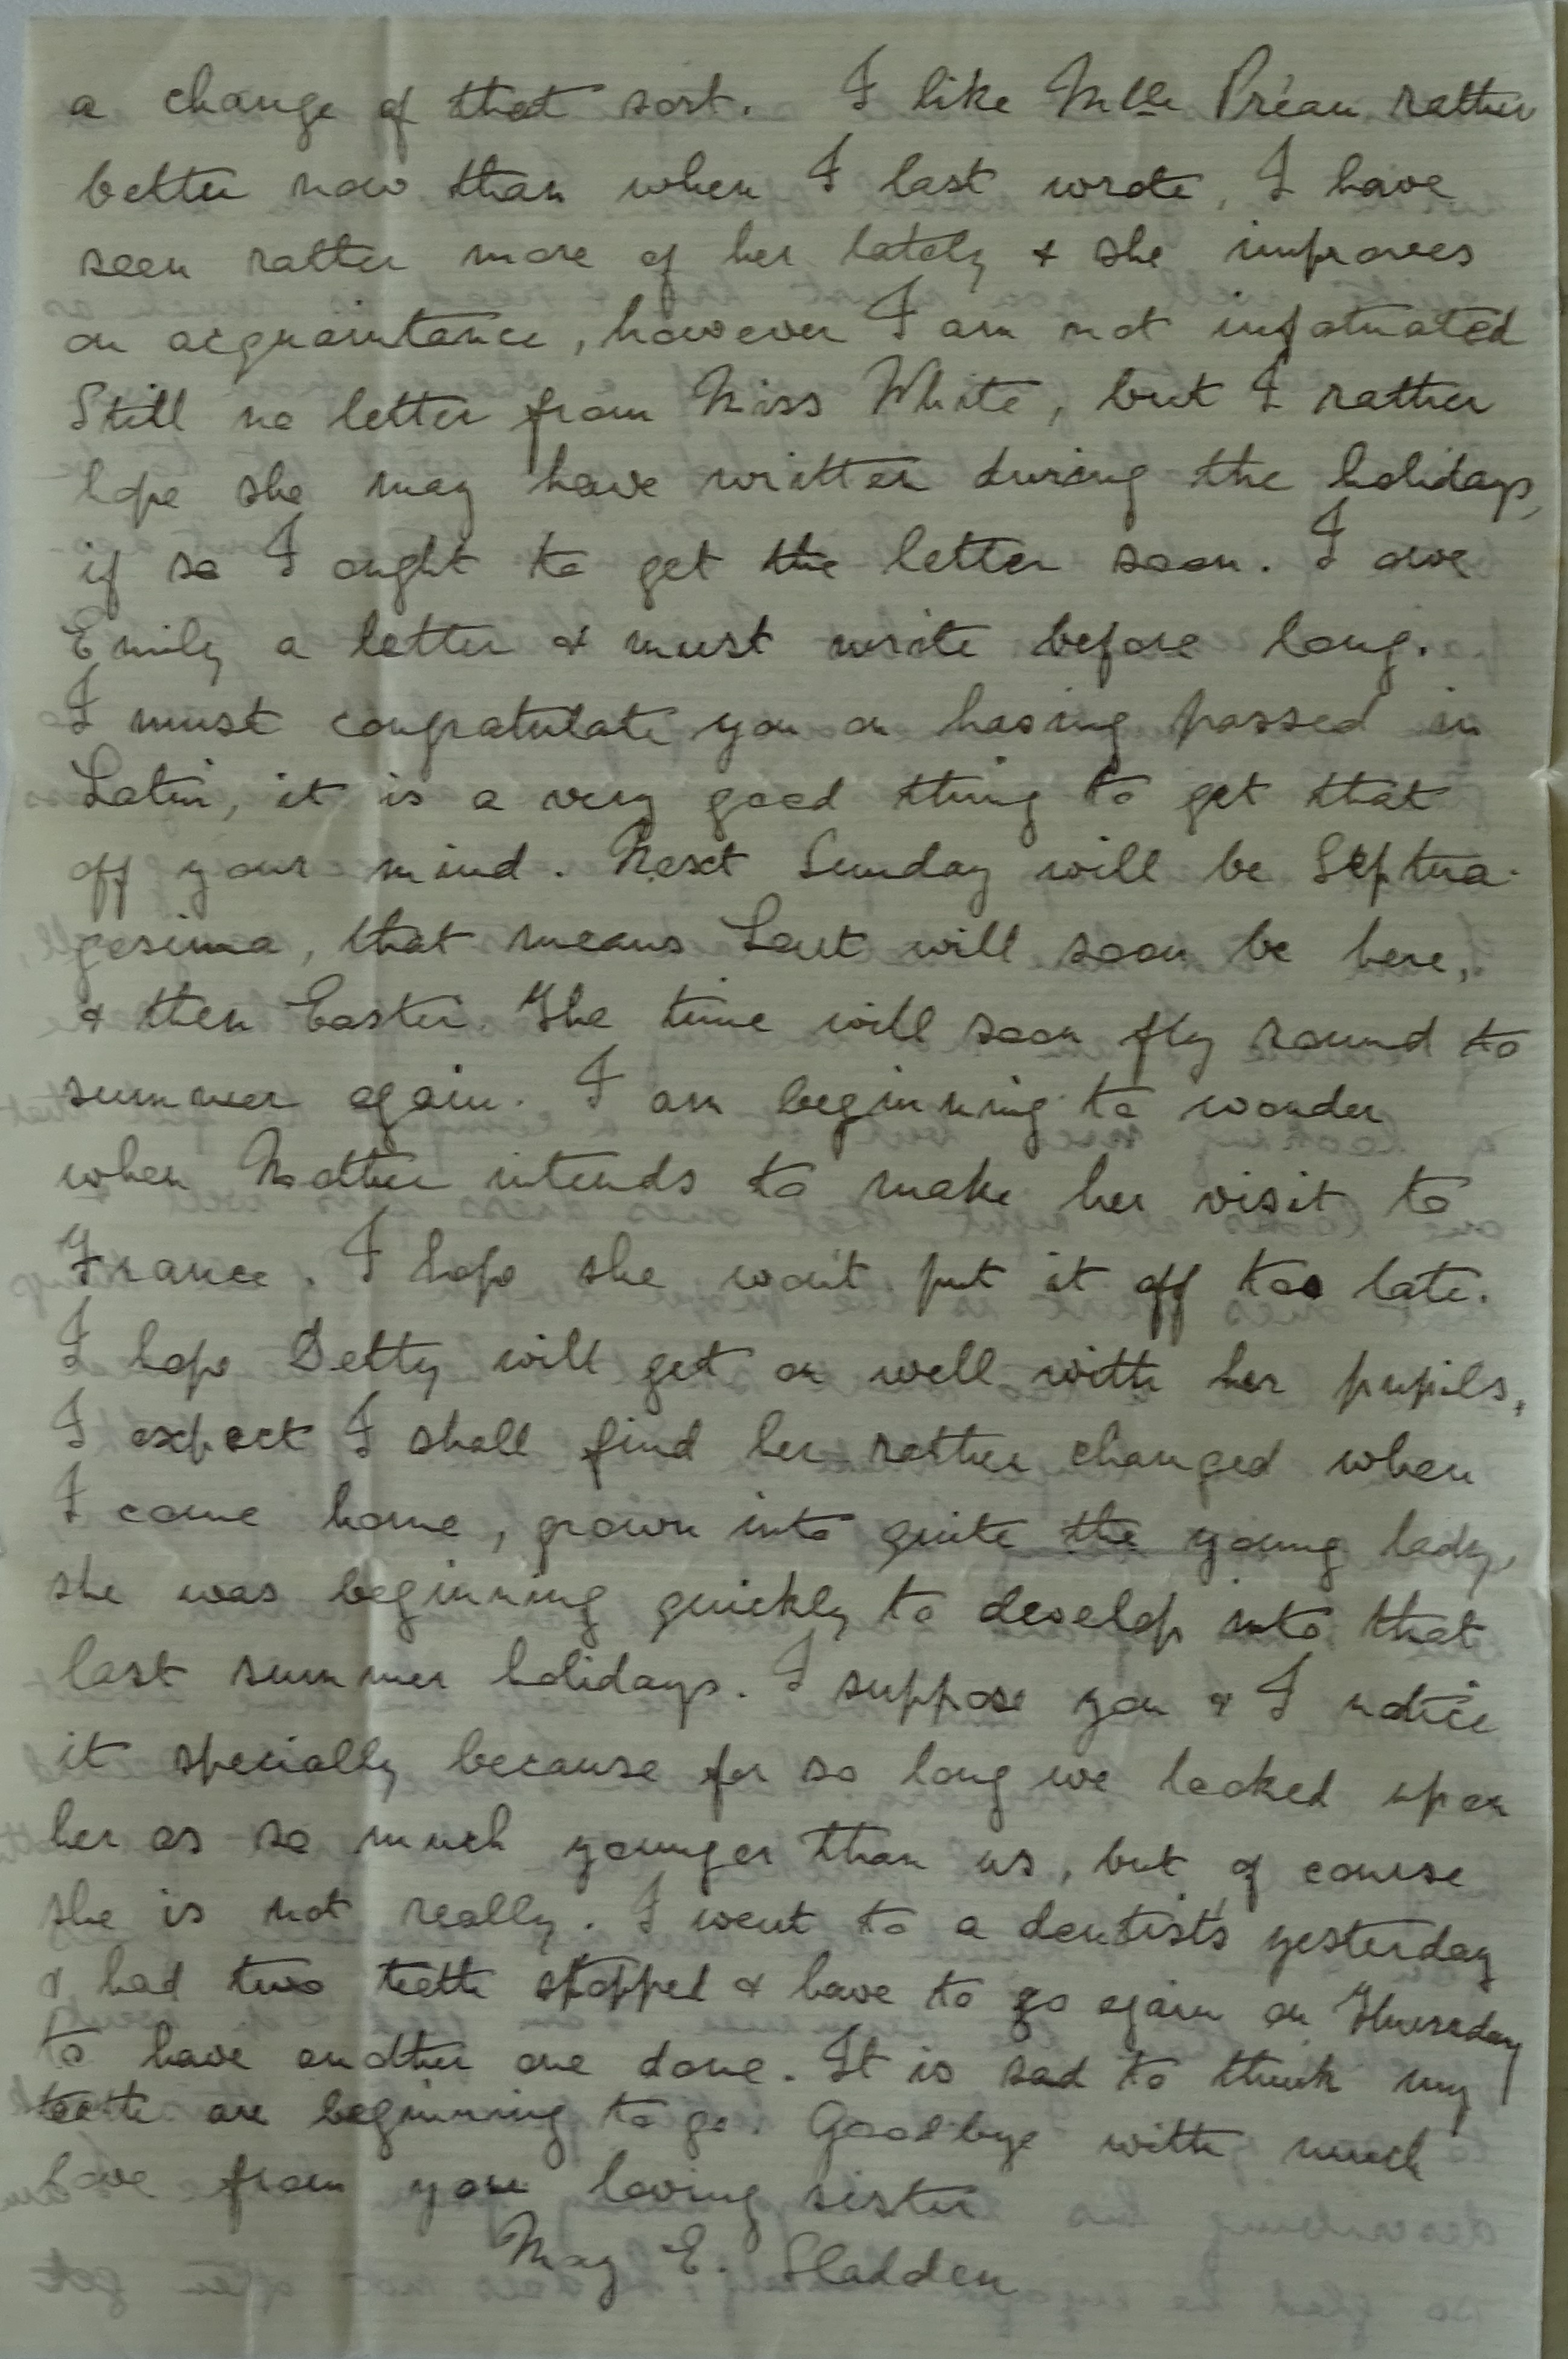 a change of that sort. I like Mlle Préau rather
better now than when I last wrote, I have
seen rather more of her lately & she improves
on acquaintance, however I am not infatuated
Still no letter from Miss White, but I rather
hope she may have written during the holidays,
if so I ought to get the letter soon. I owe
Emily a letter & must write before long.
I must congratulate you on having passed in
Latin, it is a very good thing to get that
off your mind. Next Sunday will be Septua-
gesima, that means Lent will soon be here,
& then Easter. The time will soon fly round to
summer again. I am beginning to wonder
when Mother intends to make her visit to
France. I hope she won't put it off too late.
I hope Betty will get on well with her pupils,
I expect I shall find her rather changed when
I come home, grown into quite the young lady,
she was beginning quickly to develop into that
last summer holidays. I suppose you & I notice
it specially because for so long we looked upon
her as so much younger than us, but of course
she is not really. I went to a dentist's yesterday
& had two teeth stopped & have to go again on Thursday
to have another one done. It is sad to think my
teeth are beginning to go. Goodbye with much
love from your loving sister
May E. Sladden